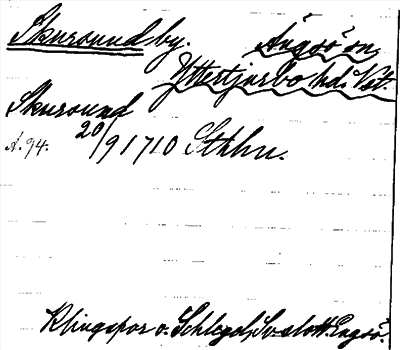 Skursund by. Ängsö sn,
Yttertjurbo hd. Vst.
Skursund
A. 94. 20/9 1710 Sthlm.
Klingspor o. Schlegel, Sv. slott. Engsö.